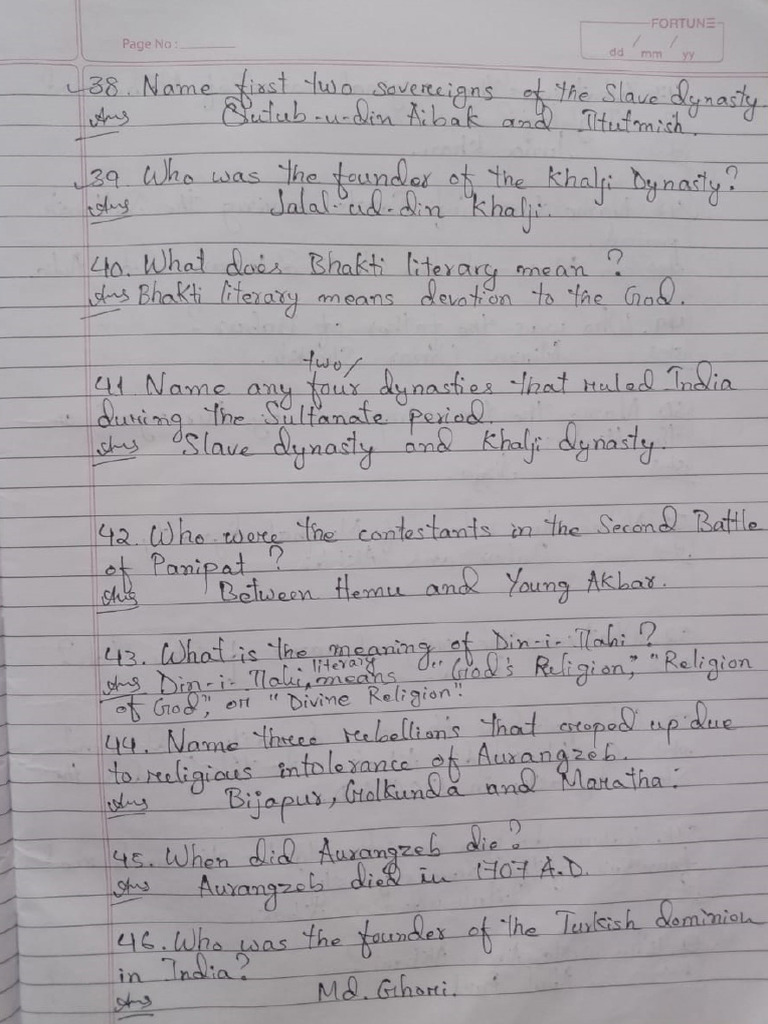 FORTUNE
Page No :
dd / mm / yy
38. Name first two sovereigns of the Slave dynasty
Ans Qutub-u-din Aibak and Iltutmish.
39. Who was the founder of the Khalji Dynasty?
Ans Jalal-ud-din Khalji.
40. What does Bhakti literary mean ?
Ans Bhakti literary means devotion to the God.
two/
41 Name any four dynasties that ruled India
during the Sultanate period.
Ans Slave dynasty and Khalji dynasty.
42. Who were the contestants in the Second Battle
of Panipat ?
Ans Between Hemu and Young Akbar.
43. What is the meaning of Din-i-Ilahi ?
literary
Ans Din-i-Ilahi, means "God's Religion," "Religion
of God", or "Divine Religion".
44. Name three rebellions that croped up due
to religious intolerance of Aurangzeb.
Ans Bijapur, Golkunda and Maratha.
45. When did Aurangzeb die?
Ans Aurangzeb died in 1707 A.D.
46. Who was the founder of the Turkish dominion
in India?
Ans Md. Ghori.